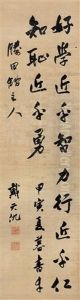 好學近乎智力行近乎仁
知恥近乎勇
甲寅夏暮書
勝田主人
戴天仇